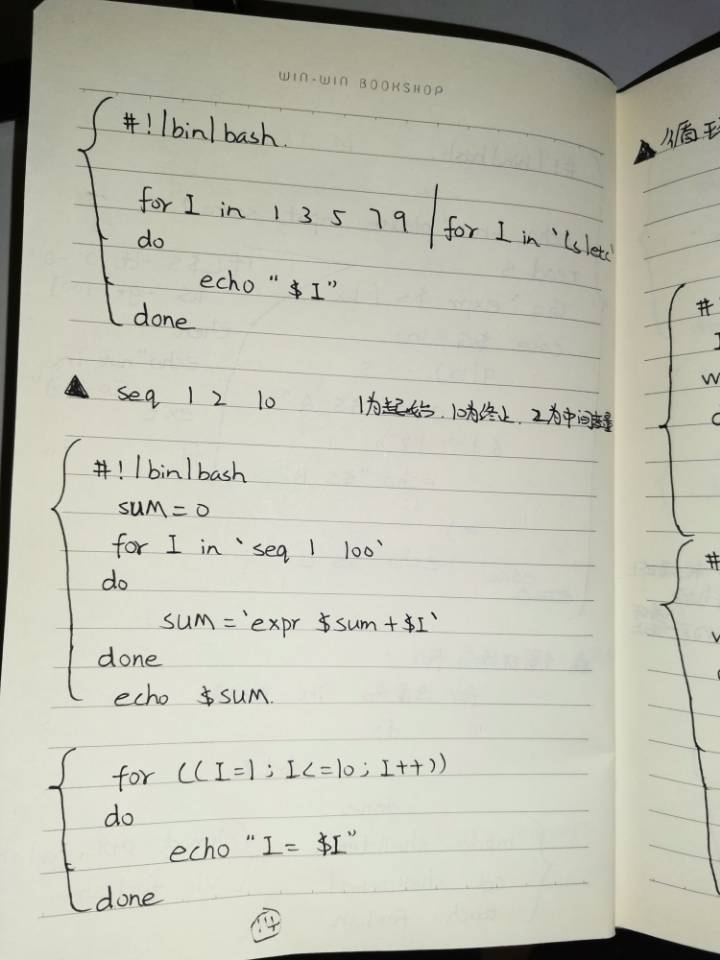 WIN-WIN BOOKSHOP
#!/bin/bash.
for I in 1 3 5 7 9 | for I in `ls/etc`
do
echo "$I"
done
▲ seq 1 2 10 1为起始. 10为终止. 2为中间变量
#!/bin/bash
sum=0
for I in `seq 1 100`
do
sum=`expr $sum+$I`
done
echo $sum.
for ((I=1; I<=10; I++))
do
echo "I= $I"
done
14
▲ 循环
#
I
w
#
w